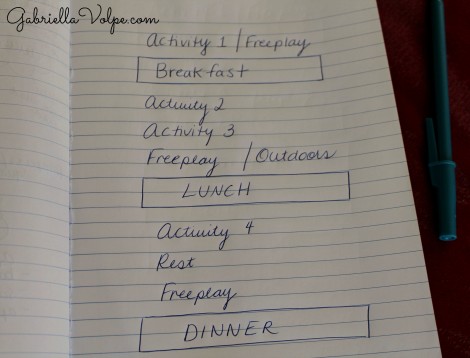 Gabriella-Volpe.com
Activity 1 / Freeplay
Breakfast
Activity 2
Activity 3
Freeplay / Outdoors
LUNCH
Activity 4
Rest
Freeplay
DINNER